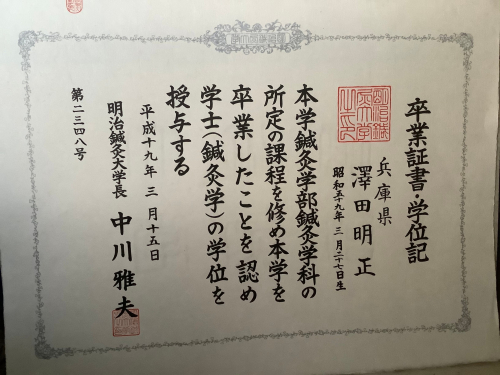 卒業証書・学位記
兵庫県
澤田明正
昭和五十九年三月二十七日生
本学鍼灸学部鍼灸学科の
所定の課程を修め本学を
卒業したことを認め
学士(鍼灸学)の学位を
授与する
平成十九年三月十五日
明治鍼灸大学長 中川雅夫
第二三四八号